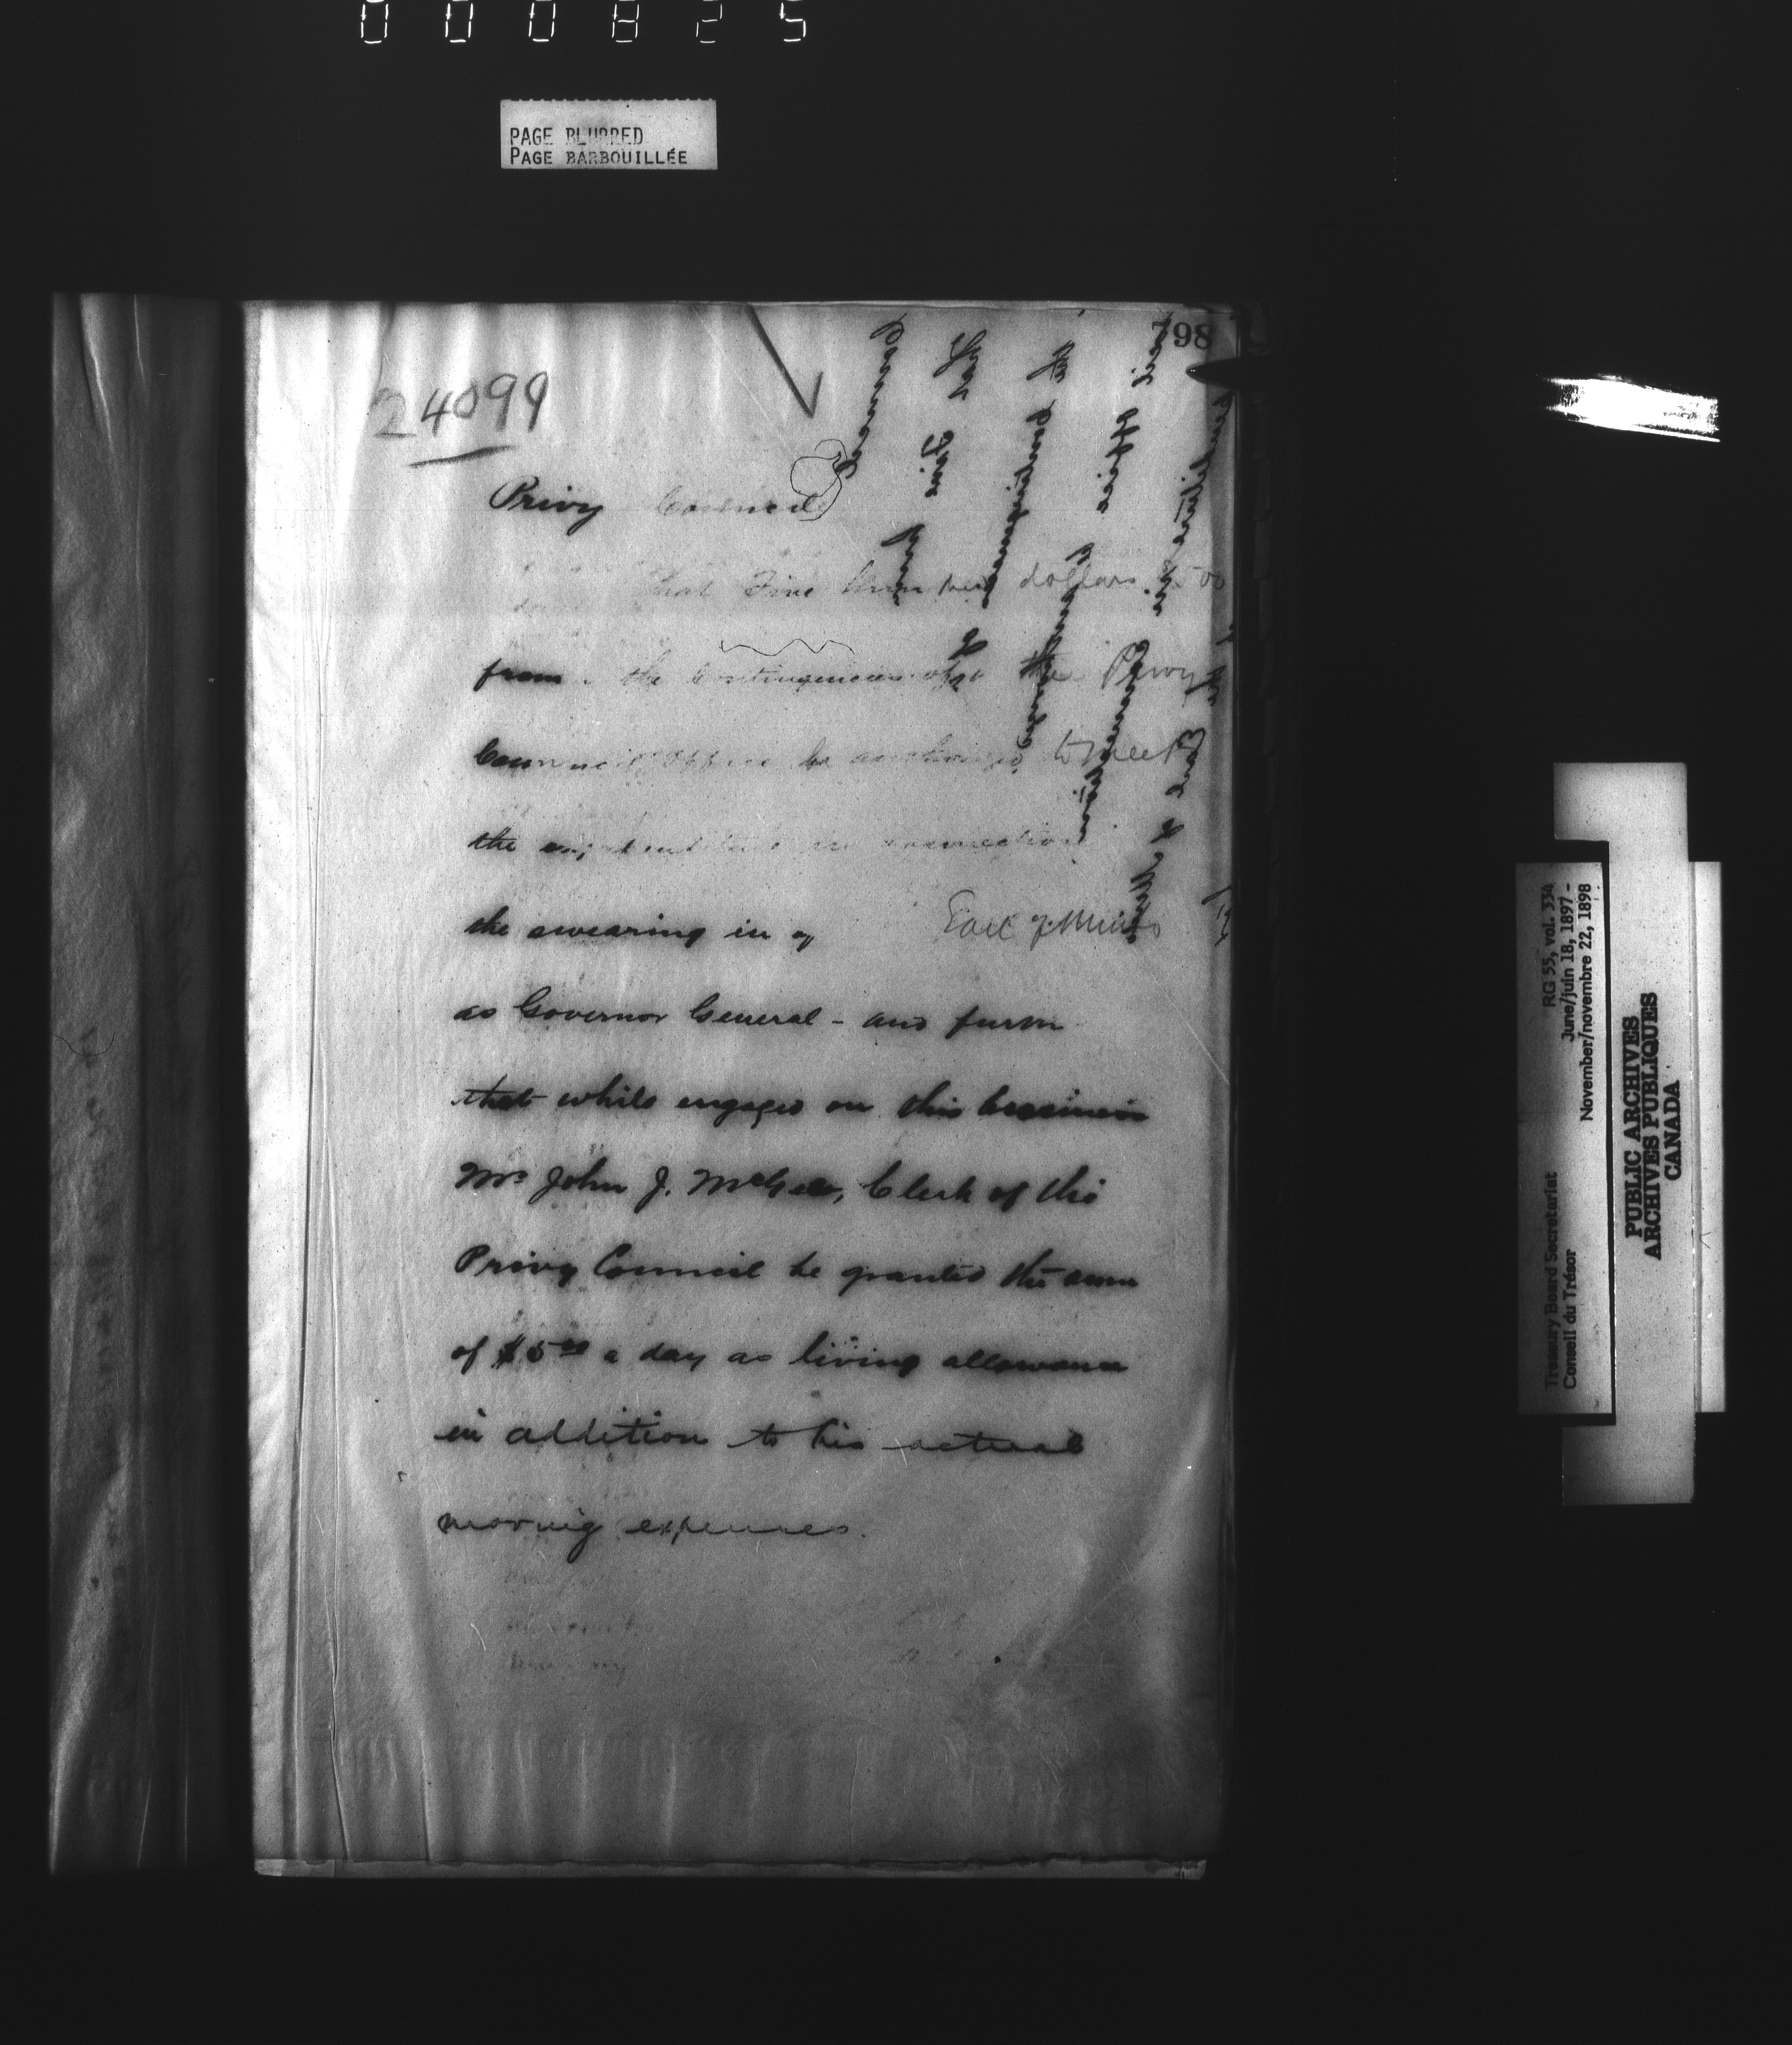 000825
PAGE BLURRED
PAGE BARBOUILLÉE
798
24099
Privy Council
that Five hundred dollars 500
from the Contingencies of the Privy
Council Office be authorized to meet
the expenditure in connection
the swearing in of Earl of Minto
as Governor General - and furm
that while engaged on this business
Mr John J. McGee, Clerk of the
Privy Council be granted the sum
of $5 00 a day as living allowance
in addition to his actual
moving expenses.
Council
That Five hun
the Contingencies of
cil Office be authorized
penditure in connection
of the Earl of Minto
Treasury Board Secretariat RG 55, vol. 334
Conseil du Trésor June/juin 18, 1897 -
November/novembre 22, 1898
PUBLIC ARCHIVES
ARCHIVES PUBLIQUES
CANADA